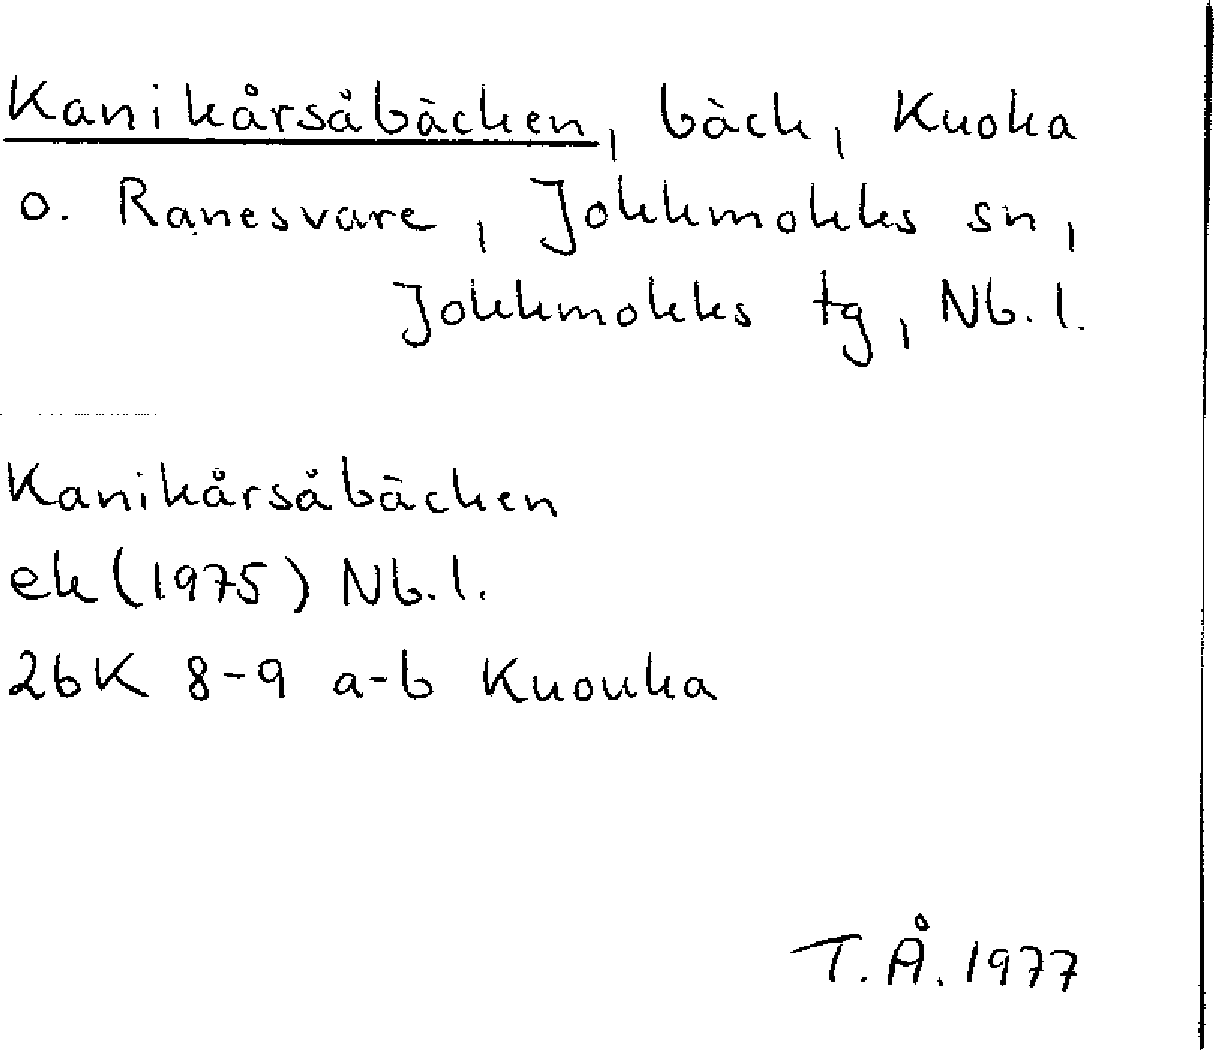 Kanikårsåbäcken, bäck, Kuoka
o. Ranesvare, Jokkmokks sn,
Jokkmokks tg, Nb.l.
Kanikårsåbäcken
ek (1975) Nb.l.
26K 8-9 a-b Kuouka
T.Å. 1977